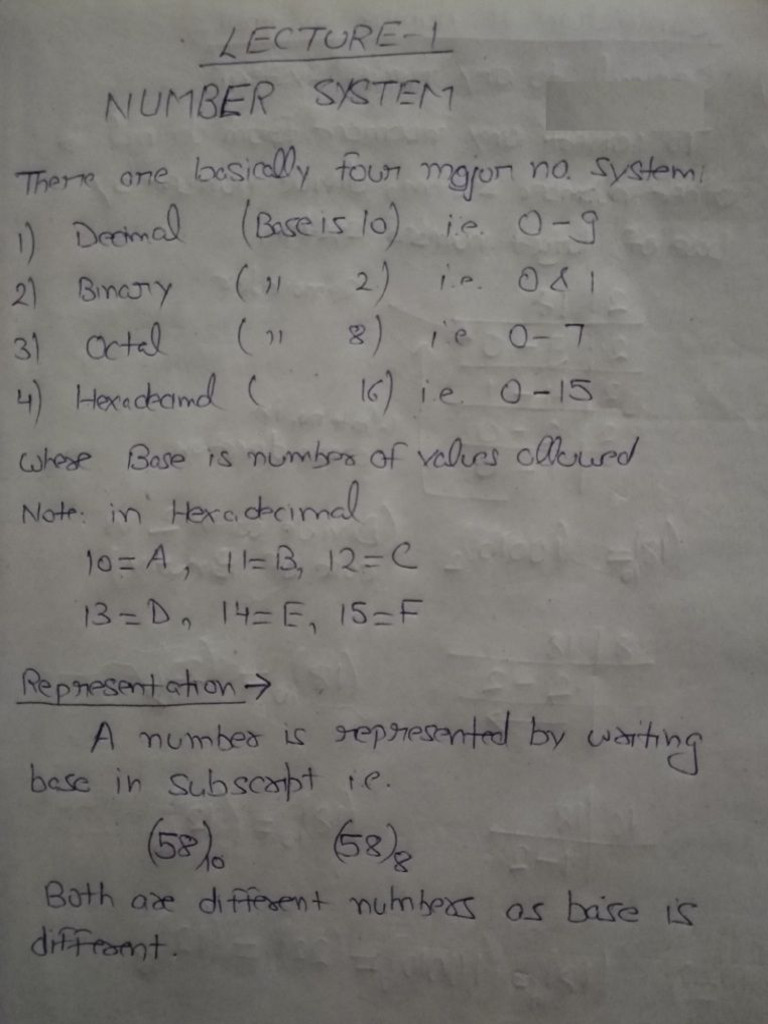 LECTURE-1
NUMBER SYSTEM
There are basically four major no. system:
1) Decimal (Base is 10) i.e. 0-9
2) Binary ( " 2) i.e. 0 & 1
3) Octal ( " 8) i.e 0-7
4) Hexadecimal ( 16) i.e. 0-15
where Base is number of values allowed
Note: in Hexadecimal
10=A, 11=B, 12=C
13=D, 14=E, 15=F
Representation →
A number is represented by writing
base in subscript i.e.
(58)₁₀ (58)₈
Both are different numbers as base is
different.